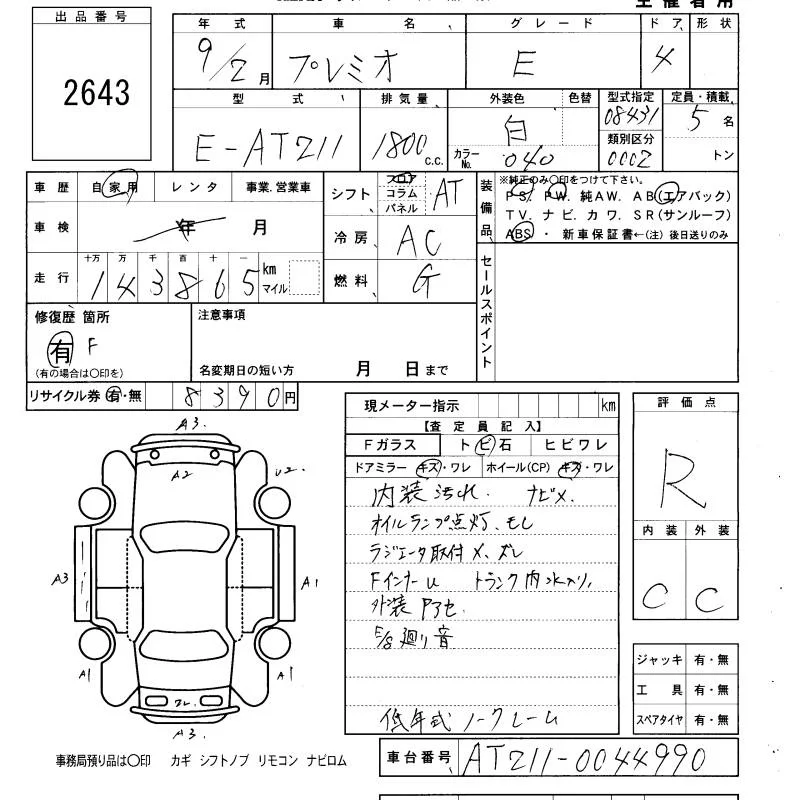 出品番号
2643
年式 車名 グレード ドア 形状
9/2月 プレミオ E 4
型式 排気量 外装色 色替 型式指定 定員・積載
E-AT211 1800c.c. 白 08431 5名
カラーNo. 040 類別区分 0002 トン
車歴 自家用 レンタ 事業.営業車
車検 年 月
走行 十万 万 千 百 十 一
143865 km マイル
シフト フロア コラム パネル AT
冷房 AC
燃料 G
装備品
※純正のみ〇印をつけて下さい。
PS. PW. 純AW. AB(エアバック)
TV. ナビ. カワ. SR(サンルーフ)
ABS ・ 新車保証書←(注)後日送りのみ
セールスポイント
修復歴 箇所
有 F
(有の場合は〇印を)
注意事項
名変期日の短い方 月 日まで
リサイクル券 有・無 8390円
現メーター指示 km
【査定員記入】
Fガラス トビ石 ヒビワレ
ドアミラー キズ・ワレ ホイール(CP) キズ・ワレ
内装汚れ. ナビメ.
オイルランプ点灯.モレ
ラジエータ取付メ.ズレ
Fインナーu トランク内水入り.
外装Pアセ
E/g廻り音
低年式 ノークレーム
評価点
R
内装 外装
C C
ジャッキ 有・無
工具 有・無
スペアタイヤ 有・無
A3.
A2
U2
A3
A1
A1
A1
ワレ
A3.
事務局預り品は〇印 カギ シフトノブ リモコン ナビロム
車台番号 AT211-0044990